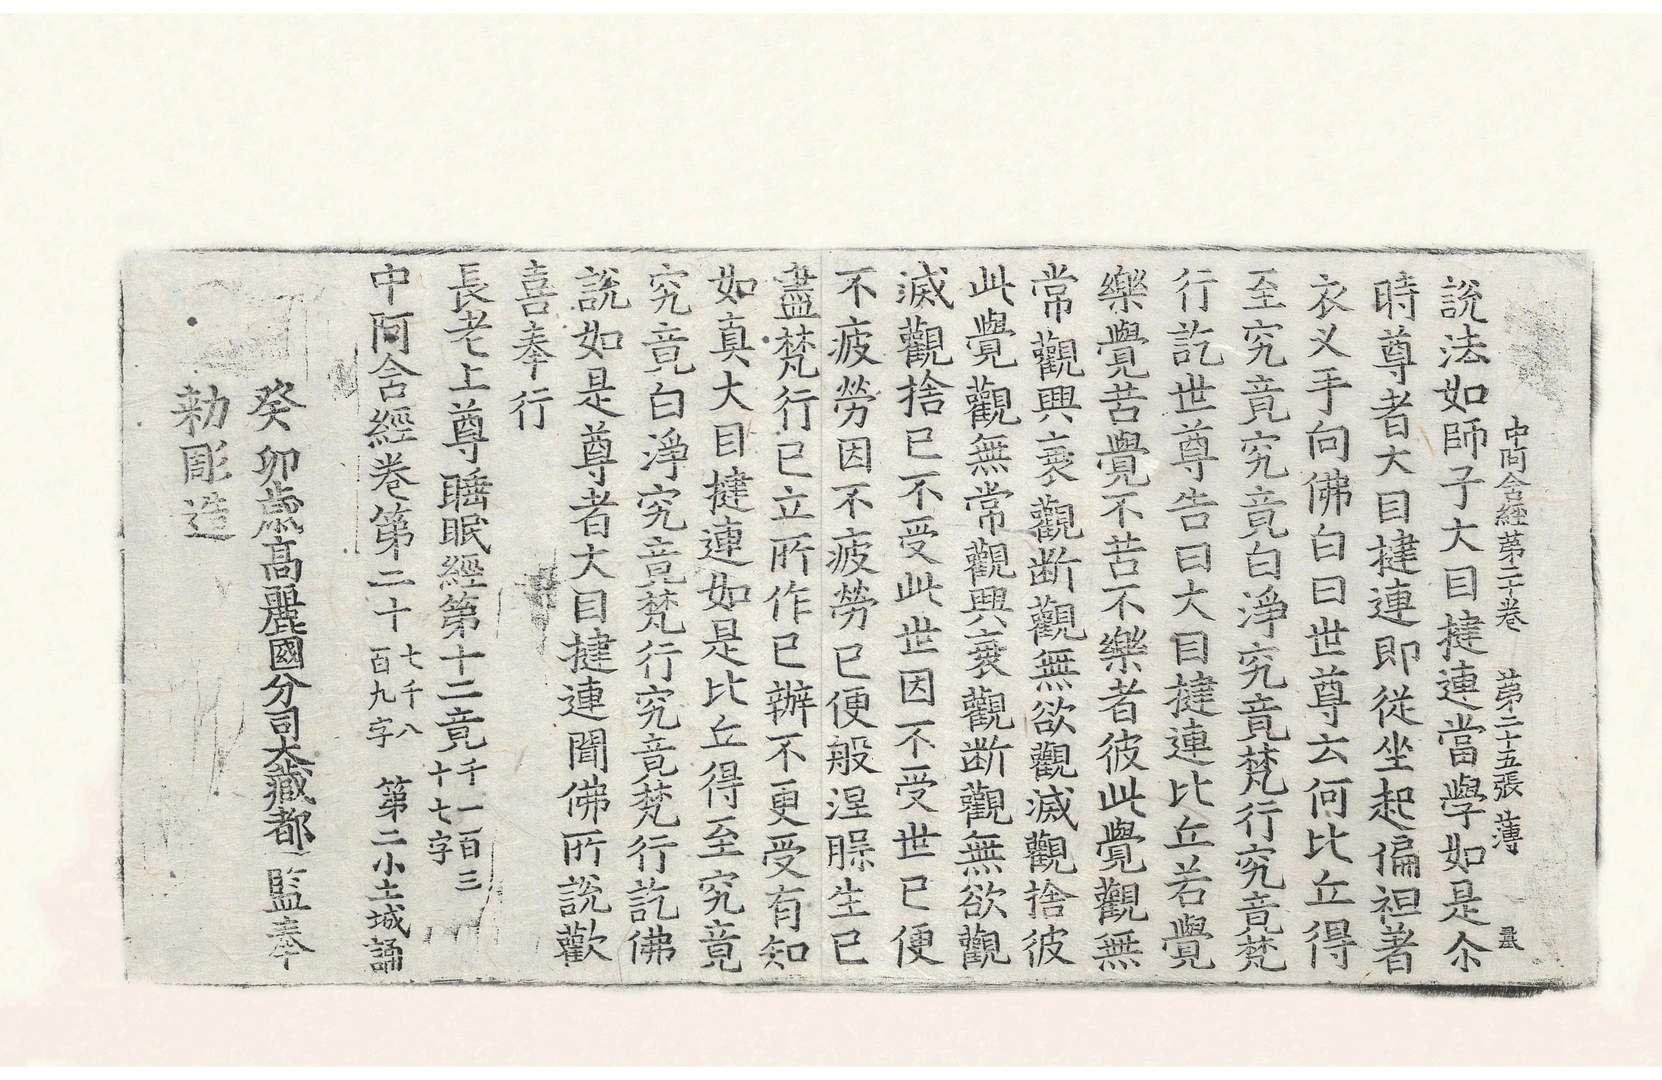 中阿含經第二十卷 第二十五張 薄
說法如師子大目揵連當學如是尒
時尊者大目揵連即從坐起偏袒著
衣叉手向佛白曰世尊云何比丘得
至究竟究竟白淨究竟梵行究竟梵
行訖世尊告曰大目揵連比丘若覺
樂覺苦覺不苦不樂者彼此覺觀無
常觀興衰觀斷觀無欲觀滅觀捨彼
此覺觀無常觀興衰觀斷觀無欲觀
滅觀捨已不受此世因不受世已便
不疲勞因不疲勞已便般涅槃生已
盡梵行已立所作已辦不更受有知
如真大目揵連如是比丘得至究竟
究竟白淨究竟梵行究竟梵行訖佛
說如是尊者大目揵連聞佛所說歡
喜奉行
長老上尊睡眠經第十二竟 千一百三十七字
中阿含經卷第二十 七千八百九字 第二小土城誦
癸卯歲高麗國分司大藏都監奉
勑彫造